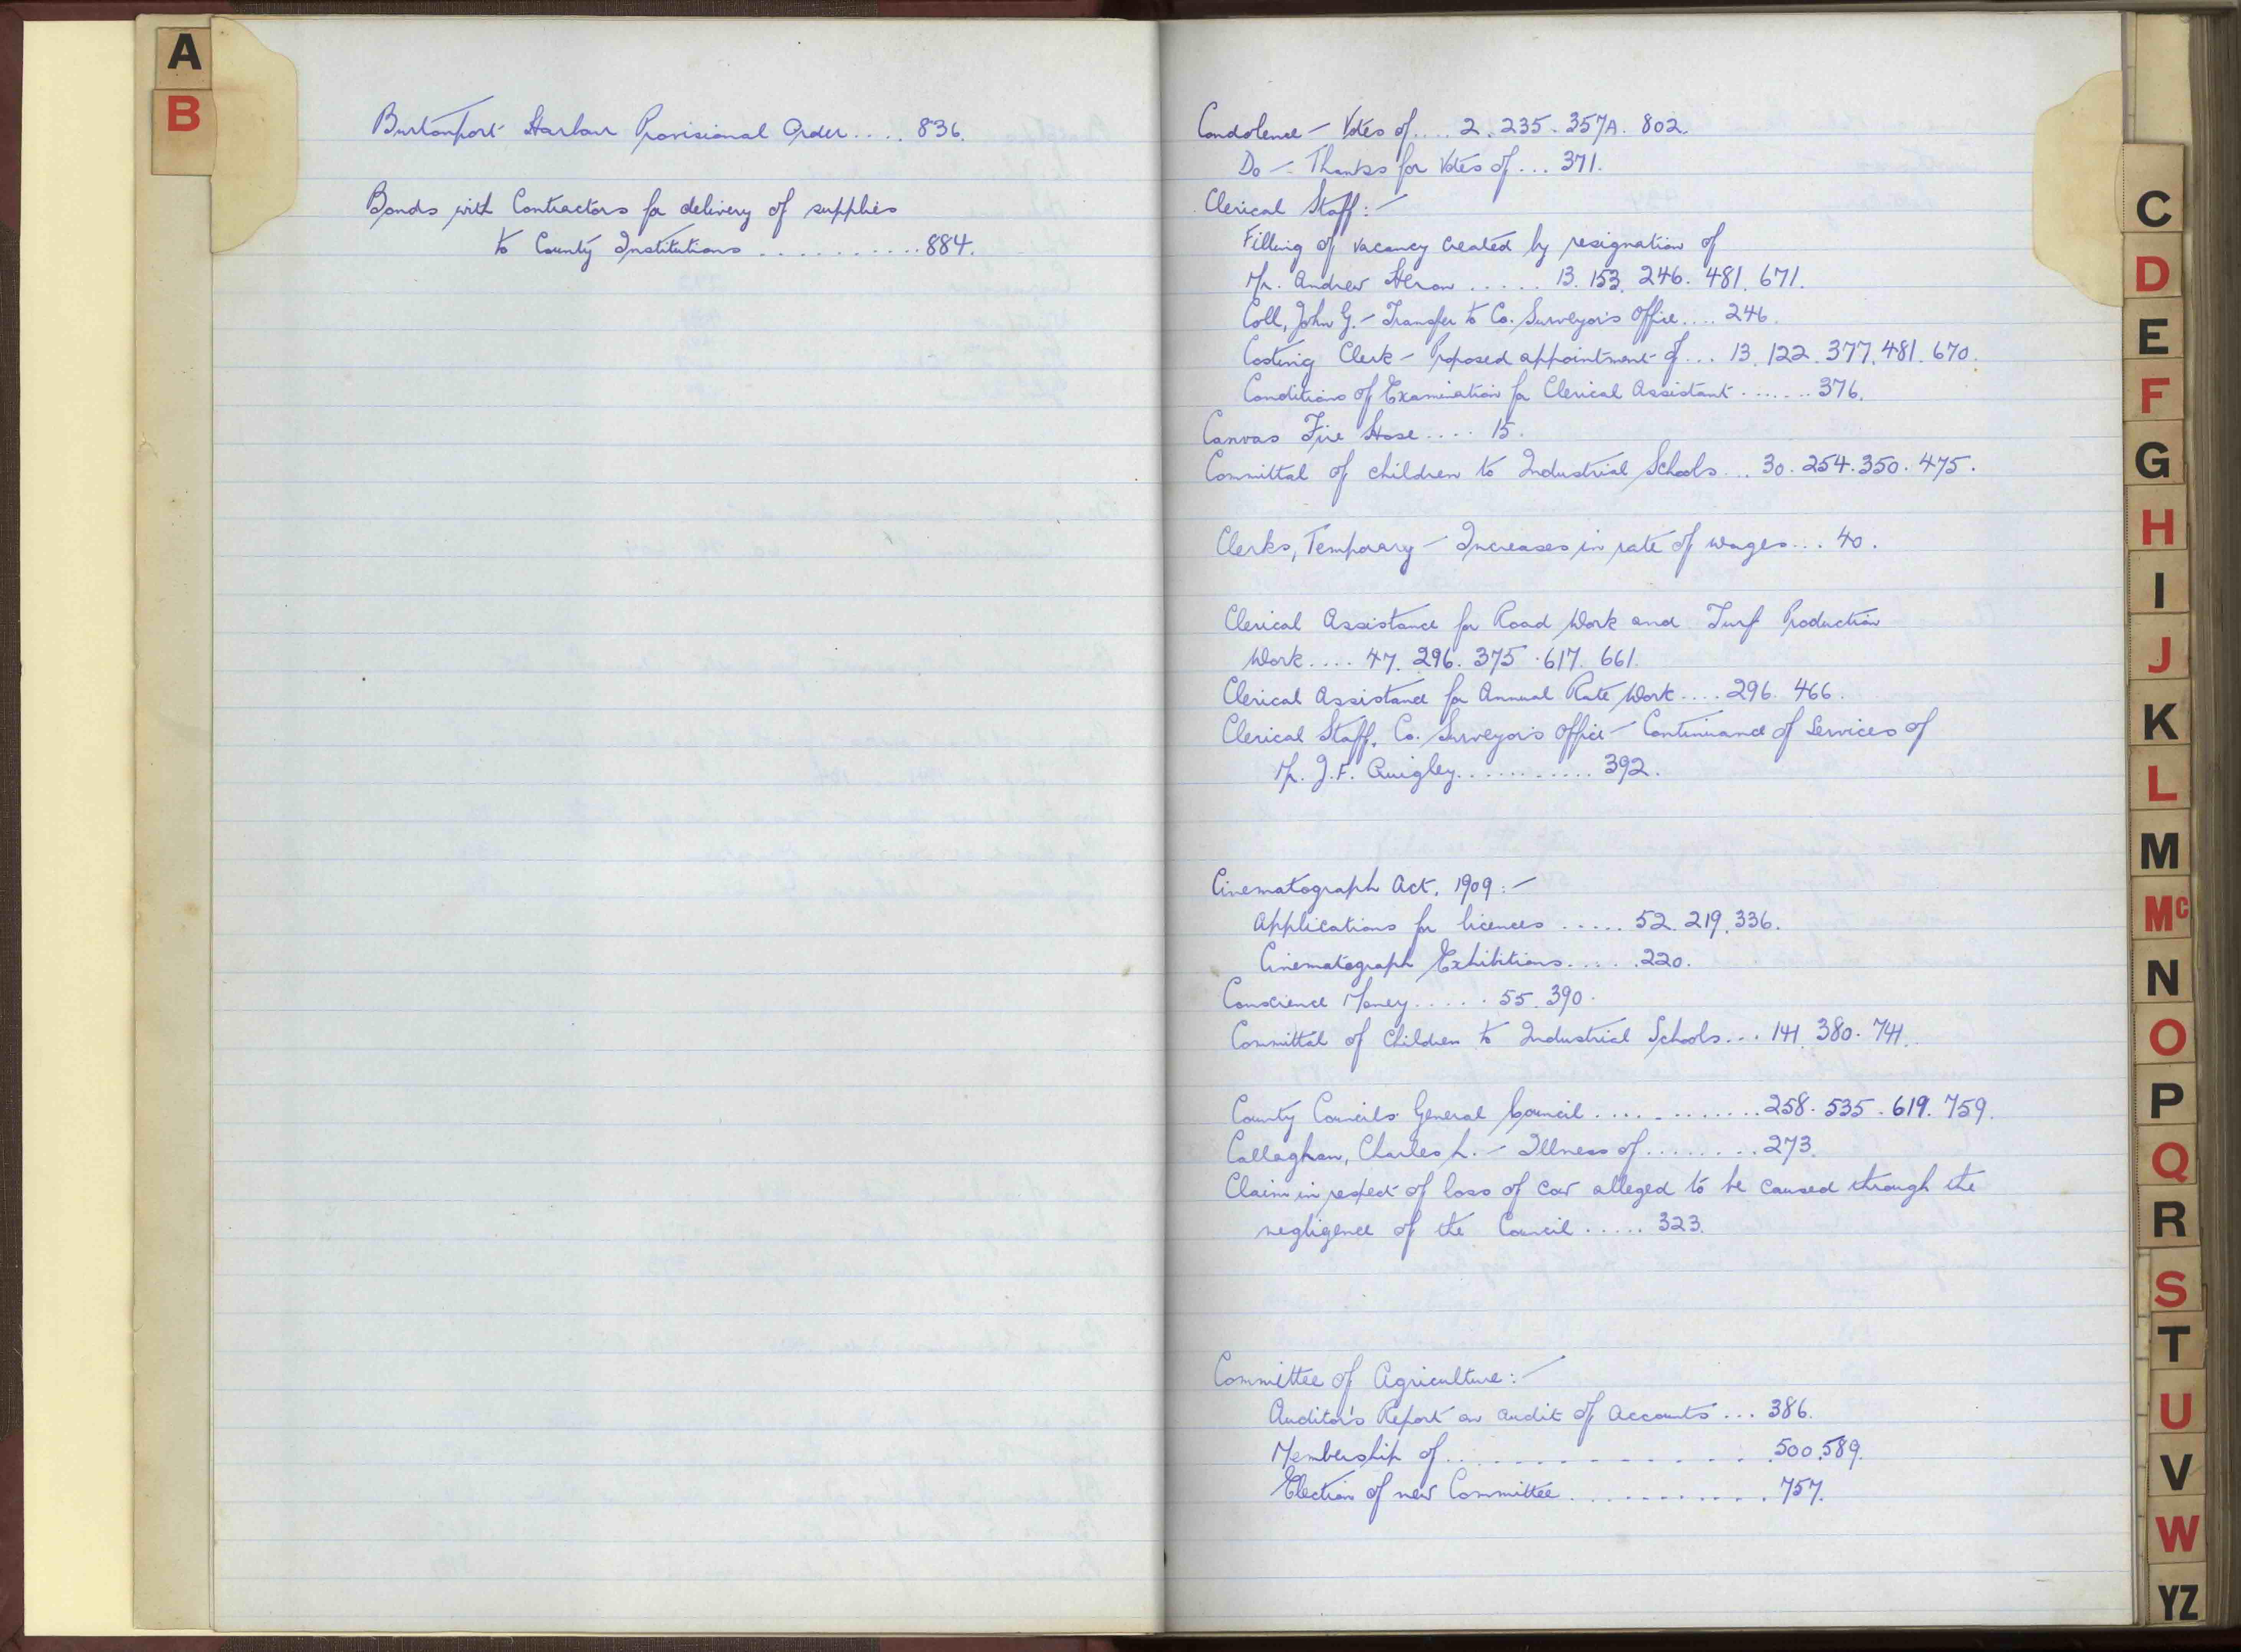 A
B
Burtonport Harbour Provisional Order .... 836.
Bonds with Contractors for delivery of supplies
to County Institutions .......... 884.
Condolence - Votes of .... 2. 235. 357A. 802.
Do - Thanks for Votes of ... 371.
Clerical Staff:-
Filling of vacancy created by resignation of
Mr. Andrew Heron ..... 13. 153. 246. 481. 671.
Coll, John G. - Transfer to Co. Surveyor's Office .... 246.
Costing Clerk - Proposed appointment of ... 13. 122. 377. 481. 670.
Conditions of Examination for Clerical Assistant ....... 376.
Canvas Fire Hose .... 15.
Committal of children to Industrial Schools ... 30. 254. 350. 475.
Clerks, Temporary - Increases in rate of wages ... 40.
Clerical Assistance for Road Work and Turf Production
Work .... 47. 296. 375. 617. 661.
Clerical Assistance for Annual Rate Work .... 296. 466.
Clerical Staff, Co. Surveyor's Office - Continuance of Services of
Mr. J.F. Quigley ............ 392.
Cinematograph Act, 1909:-
Applications for licences ..... 52. 219. 336.
Cinematograph Exhibitions ..... 220.
Conscience Money ..... 55. 390.
Committal of Children to Industrial Schools ... 141. 380. 741.
County Councils General Council ............ 258. 535. 619. 759.
Callaghan, Charles L. - Illness of ........ 273.
Claim in respect of loss of cow alleged to be caused through the
negligence of the Council ..... 323.
Committee of Agriculture:-
Auditor's Report on audit of accounts ... 386.
Membership of .............. 500. 589.
Election of new Committee ........... 757.
C
D
E
F
G
H
I
J
K
L
M
Mc
N
O
P
Q
R
S
T
U
V
W
YZ